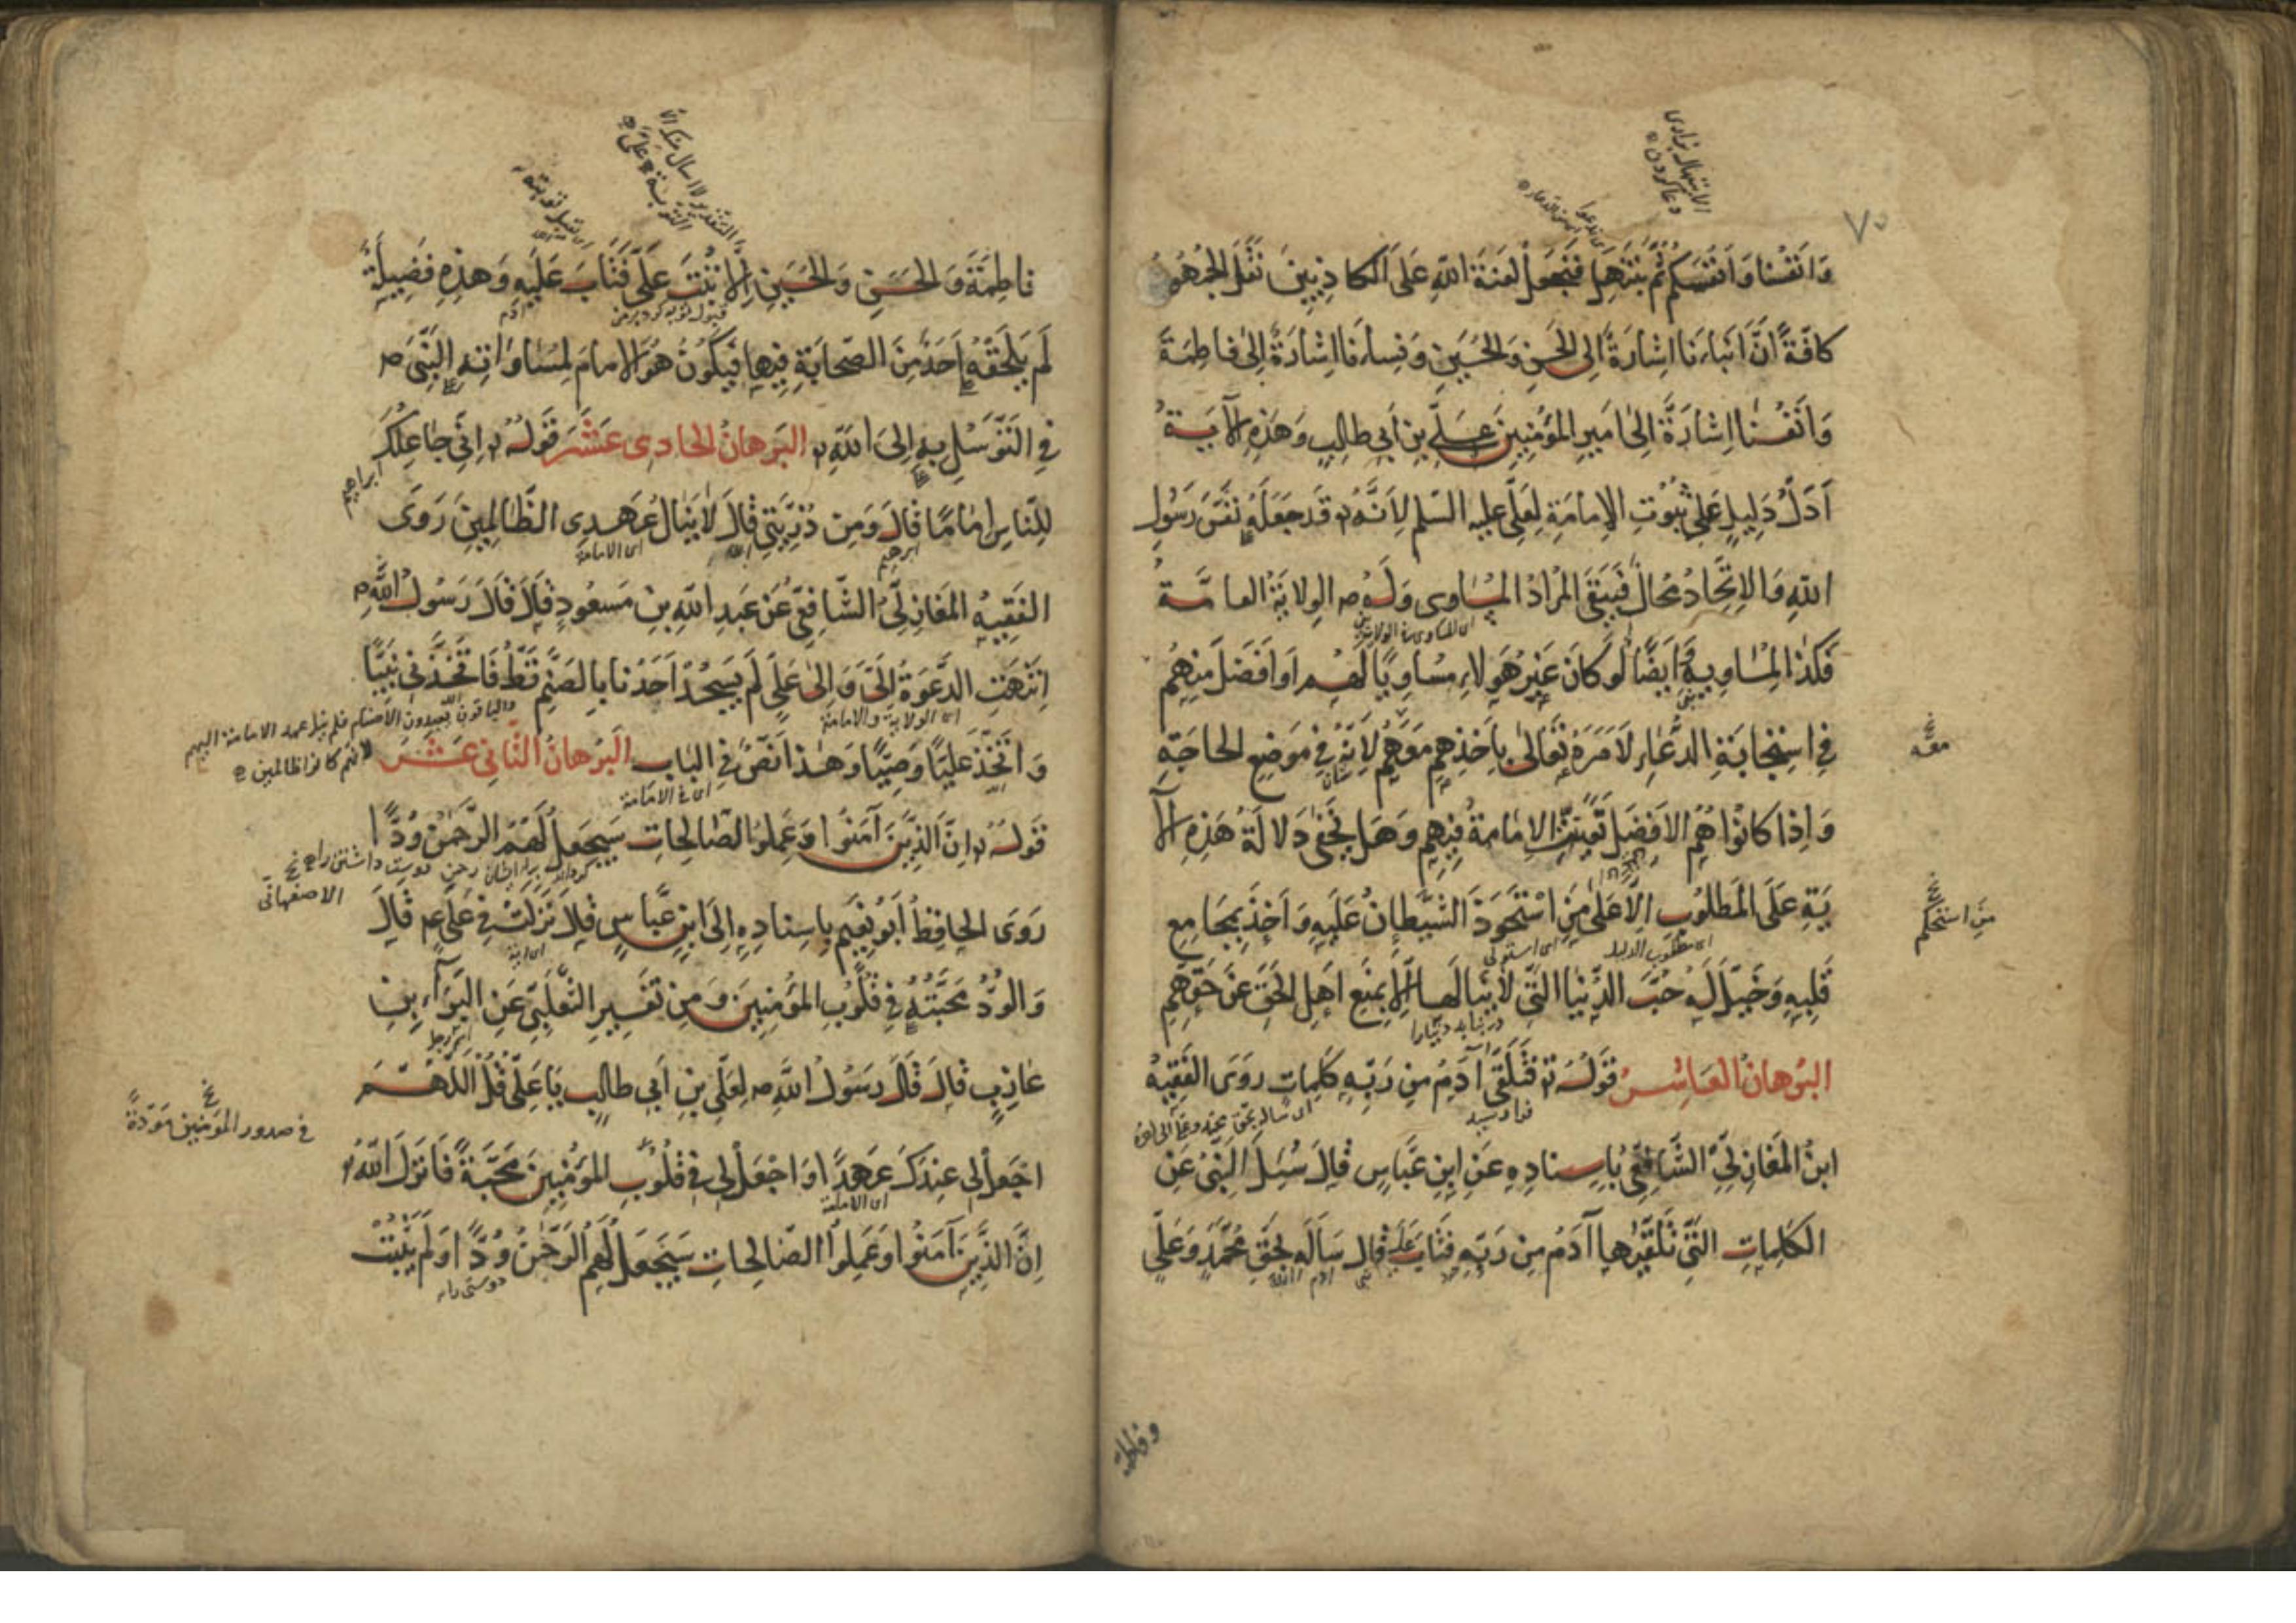 وَاَنْفُسَنا وَاَنْفُسَكُمْ ثُمَّ نَبْتَهِلْ فَنَجْعَلْ لَعْنَةَ اللّٰهِ عَلَى الْكاذِبِينَ نَقَلَ الجُمْهُورُ
كافَّةً اَنَّ اَبْناءَنا اِشارَةً اِلى الحَسَنِ وَالحُسَيْنِ وَنِساءَنا اِشارَةٌ اِلى فاطِمَةَ
وَاَنْفُسَنا اِشارَةً اِلى اَمِيرِ المُؤْمِنِينَ عَلِيِّ بنِ اَبِي طالِبٍ وَهذِهِ الآيَةُ
اَدَلُّ دَلِيلٍ عَلى ثُبُوتِ الإمامَةِ لِعَلِيٍّ عليه السّلم لِاَنَّهُ تع قَدْ جَعَلَهُ نَفْسَ رَسُولِ
اللّٰهِ وَالاِتِّحادُ مُحالٌ فَيَبْقَى المُرادُ المُساوِى وَلَهُ ص الوِلايَةُ العامَّةُ
فَكَذا لِمُساوِيهِ وَاَيْضًا لَوْ كانَ غَيْرُ هَؤُلاءِ مُساوِيًا لَهُمْ اَوْ اَفْضَلَ مِنْهُمْ
فِي اسْتِجابَةِ الدُّعاءِ لَاَمَرَهُ تَعالى بِاَخْذِهِمْ مَعَهُمْ لِاَنَّهُ فِي مَوْضِعِ الحاجَةِ
معه
وَاِذا كانُوا هُمُ الاَفْضَلَ تَعَيَّنَتِ الإمامَةُ فِيهِمْ وَهَلْ يَخْفى دَلالَةُ هَذِهِ الآ
يَةِ عَلَى المَطْلُوبِ اِلّا عَلى مَنِ اسْتَحْوَذَ الشَّيْطانُ عَلَيْهِ وَاَخَذَ بِمَجامِعِ
من استحكم
قَلْبِهِ وَخَيَّلَ لَهُ حُبَّ الدُّنْيا الَّتِي لا يَنالُها اِلّا بِمَنْعِ اَهْلِ الحَقِّ عَنْ حَقِّهِمْ
البُرْهانُ العاشِرُ قَوْلُهُ تع فَتَلَقّى آدَمُ مِنْ رَبِّهِ كَلِماتٍ رَوَى الفَقِيهُ
ابنُ المَغازِلِيِّ الشّافِعِيُّ بِاِسْنادِهِ عَنِ ابْنِ عَبّاسٍ قالَ سُئِلَ النَّبِيُّ عَنِ
الكَلِماتِ الَّتِي تَلَقّاها آدَمُ مِنْ رَبِّهِ فَتابَ عَلَيْهِ قال سَاَلَهُ بِحَقِّ مُحَمَّدٍ وَعَلِيٍّ
وفاطمة
فاطِمَةَ وَالحَسَنِ وَالحُسَيْنِ اِلّا تُبْتَ عَلَيَّ فَتابَ عَلَيْهِ وَهذِهِ فَضِيلَةٌ
لَمْ يَلْحَقْهُ اَحَدٌ مِنَ الصَّحابَةِ فِيها فَيَكُونُ هُوَ الإمامَ لِمُساواتِهِ النَّبِيَّ ص
فِي التَّوَسُّلِ بِهِ اِلَى اللّٰهِ تع البُرْهانُ الحادِى عَشَرَ قَوْلُهُ تع اِنِّي جاعِلُكَ
لِلنّاسِ اِمامًا قالَ وَمِنْ ذُرِّيَّتِي قالَ لا يَنالُ عَهْدِى الظّالِمِينَ رَوَى
الفَقِيهُ المَغازِلِيُّ الشّافِعِيُّ عَنْ عَبْدِ اللّٰهِ بْنِ مَسْعُودٍ قالَ قالَ رَسُولُ اللّٰهِ ص
اِنْتَهَتِ الدَّعْوَةُ اِلَيَّ وَاِلى عَلِيٍّ لَمْ يَسْجُدْ اَحَدُنا بِالصَّنَمِ قَطُّ فَاتَّخَذَنِي نَبِيًّا
وَاتَّخَذَ عَلِيًّا وَصِيًّا وَهذا نَصٌّ فِي البابِ البُرْهانُ الثّانِى عَشَرَ
لانهم كانوا ظالمين
قَوْلُهُ تع اِنَّ الَّذِينَ آمَنُوا وَعَمِلُوا الصّالِحاتِ سَيَجْعَلُ لَهُمُ الرَّحْمنُ وُدًّا
رَوَى الحافِظُ اَبُو نُعَيْمٍ بِاِسْنادِهِ اِلَى ابْنِ عَبّاسٍ قالَ نَزَلَتْ فِي عَلِيٍّ ع قالَ
الاصفهانى
وَالوُدُّ مَحَبَّتُهُ فِي قُلُوبِ المُؤْمِنِينَ وَمِنْ تَفْسِيرِ الثَّعْلَبِيِّ عَنِ البَراءِ بْنِ
عازِبٍ قالَ قالَ رَسُولُ اللّٰهِ ص لِعَلِيِّ بْنِ اَبِي طالِبٍ يا عَلِيُّ قُلِ اللّٰهُمَّ
فى صدور المؤمنين مودّةً
اجْعَلْ لِي عِنْدَكَ عَهْدًا وَاجْعَلْ لِي فِي قُلُوبِ المُؤْمِنِينَ مَحَبَّةً فَاَنْزَلَ اللّٰهُ تع
اِنَّ الَّذِينَ آمَنُوا وَعَمِلُوا الصّالِحاتِ سَيَجْعَلُ لَهُمُ الرَّحْمنُ وُدًّا وَلَمْ يَثْبُتْ